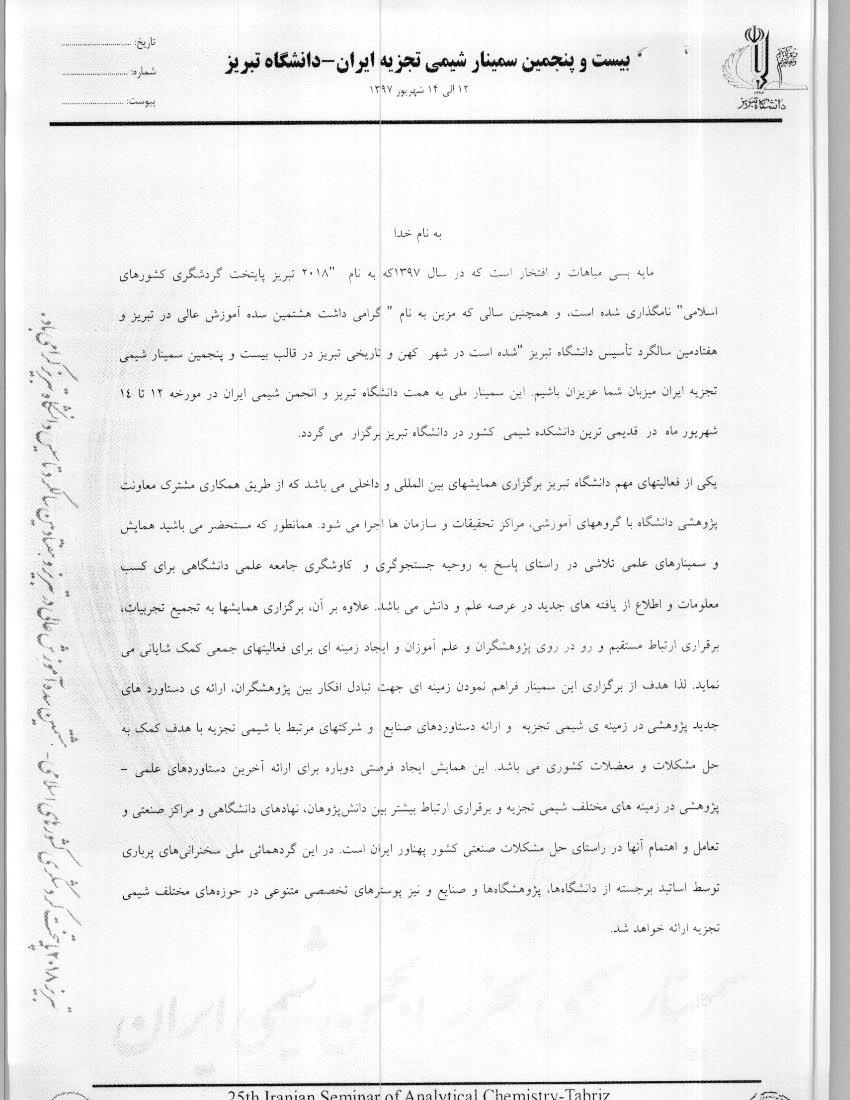 تاریخ: ..............................
شماره: ..............................
پیوست: ..............................
بیست و پنجمین سمینار شیمی تجزیه ایران-دانشگاه تبریز
۱۲ الی ۱۴ شهریور ۱۳۹۷
دانشگاه تبریز
به نام خدا
مایه بسی مباهات و افتخار است که در سال ۱۳۹۷که به نام "۲۰۱۸ تبریز پایتخت گردشگری کشورهای
اسلامی" نامگذاری شده است، و همچنین سالی که مزین به نام " گرامی داشت هشتمین سده آموزش عالی در تبریز و
هفتادمین سالگرد تأسیس دانشگاه تبریز "شده است در شهر کهن و تاریخی تبریز در قالب بیست و پنجمین سمینار شیمی
تجزیه ایران میزبان شما عزیزان باشیم. این سمینار ملی به همت دانشگاه تبریز و انجمن شیمی ایران در مورخه ۱۲ تا ۱٤
شهریور ماه در قدیمی ترین دانشکده شیمی کشور در دانشگاه تبریز برگزار می گردد.
یکی از فعالیتهای مهم دانشگاه تبریز برگزاری همایشهای بین المللی و داخلی می باشد که از طریق همکاری مشترک معاونت
پژوهشی دانشگاه با گروههای آموزشی، مراکز تحقیقات و سازمان ها اجرا می شود. همانطور که مستحضر می باشید همایش
و سمینارهای علمی تلاشی در راستای پاسخ به روحیه جستجوگری و کاوشگری جامعه علمی دانشگاهی برای کسب
معلومات و اطلاع از یافته های جدید در عرصه علم و دانش می باشد. علاوه بر آن، برگزاری همایشها به تجمیع تجربیات،
برقراری ارتباط مستقیم و رو در روی پژوهشگران و علم آموزان و ایجاد زمینه ای برای فعالیتهای جمعی کمک شایانی می
نماید. لذا هدف از برگزاری این سمینار فراهم نمودن زمینه ای جهت تبادل افکار بین پژوهشگران، ارائه ی دستاورد های
جدید پژوهشی در زمینه ی شیمی تجزیه و ارائه دستاوردهای صنایع و شرکتهای مرتبط با شیمی تجزیه با هدف کمک به
حل مشکلات و معضلات کشوری می باشد. این همایش ایجاد فرصتی دوباره برای ارائه آخرین دستاوردهای علمی -
پژوهشی در زمینه های مختلف شیمی تجزیه و برقراری ارتباط بیشتر بین دانش‌پژوهان، نهادهای دانشگاهی و مراکز صنعتی و
تعامل و اهتمام آنها در راستای حل مشکلات صنعتی کشور پهناور ایران است. در این گردهمائی ملی سخنرانی‌های پرباری
توسط اساتید برجسته از دانشگاه‌ها، پژوهشگاه‌ها و صنایع و نیز پوسترهای تخصصی متنوعی در حوزه‌های مختلف شیمی
تجزیه ارائه خواهد شد.
تبریز ۲۰۱۸ پایتخت گردشگری کشورهای اسلامی - هشتمین سده آموزش عالی در تبریز و هفتادمین سالگرد تاسیس دانشگاه تبریز گرامی باد.
25th Iranian Seminar of Analytical Chemistry-Tabriz